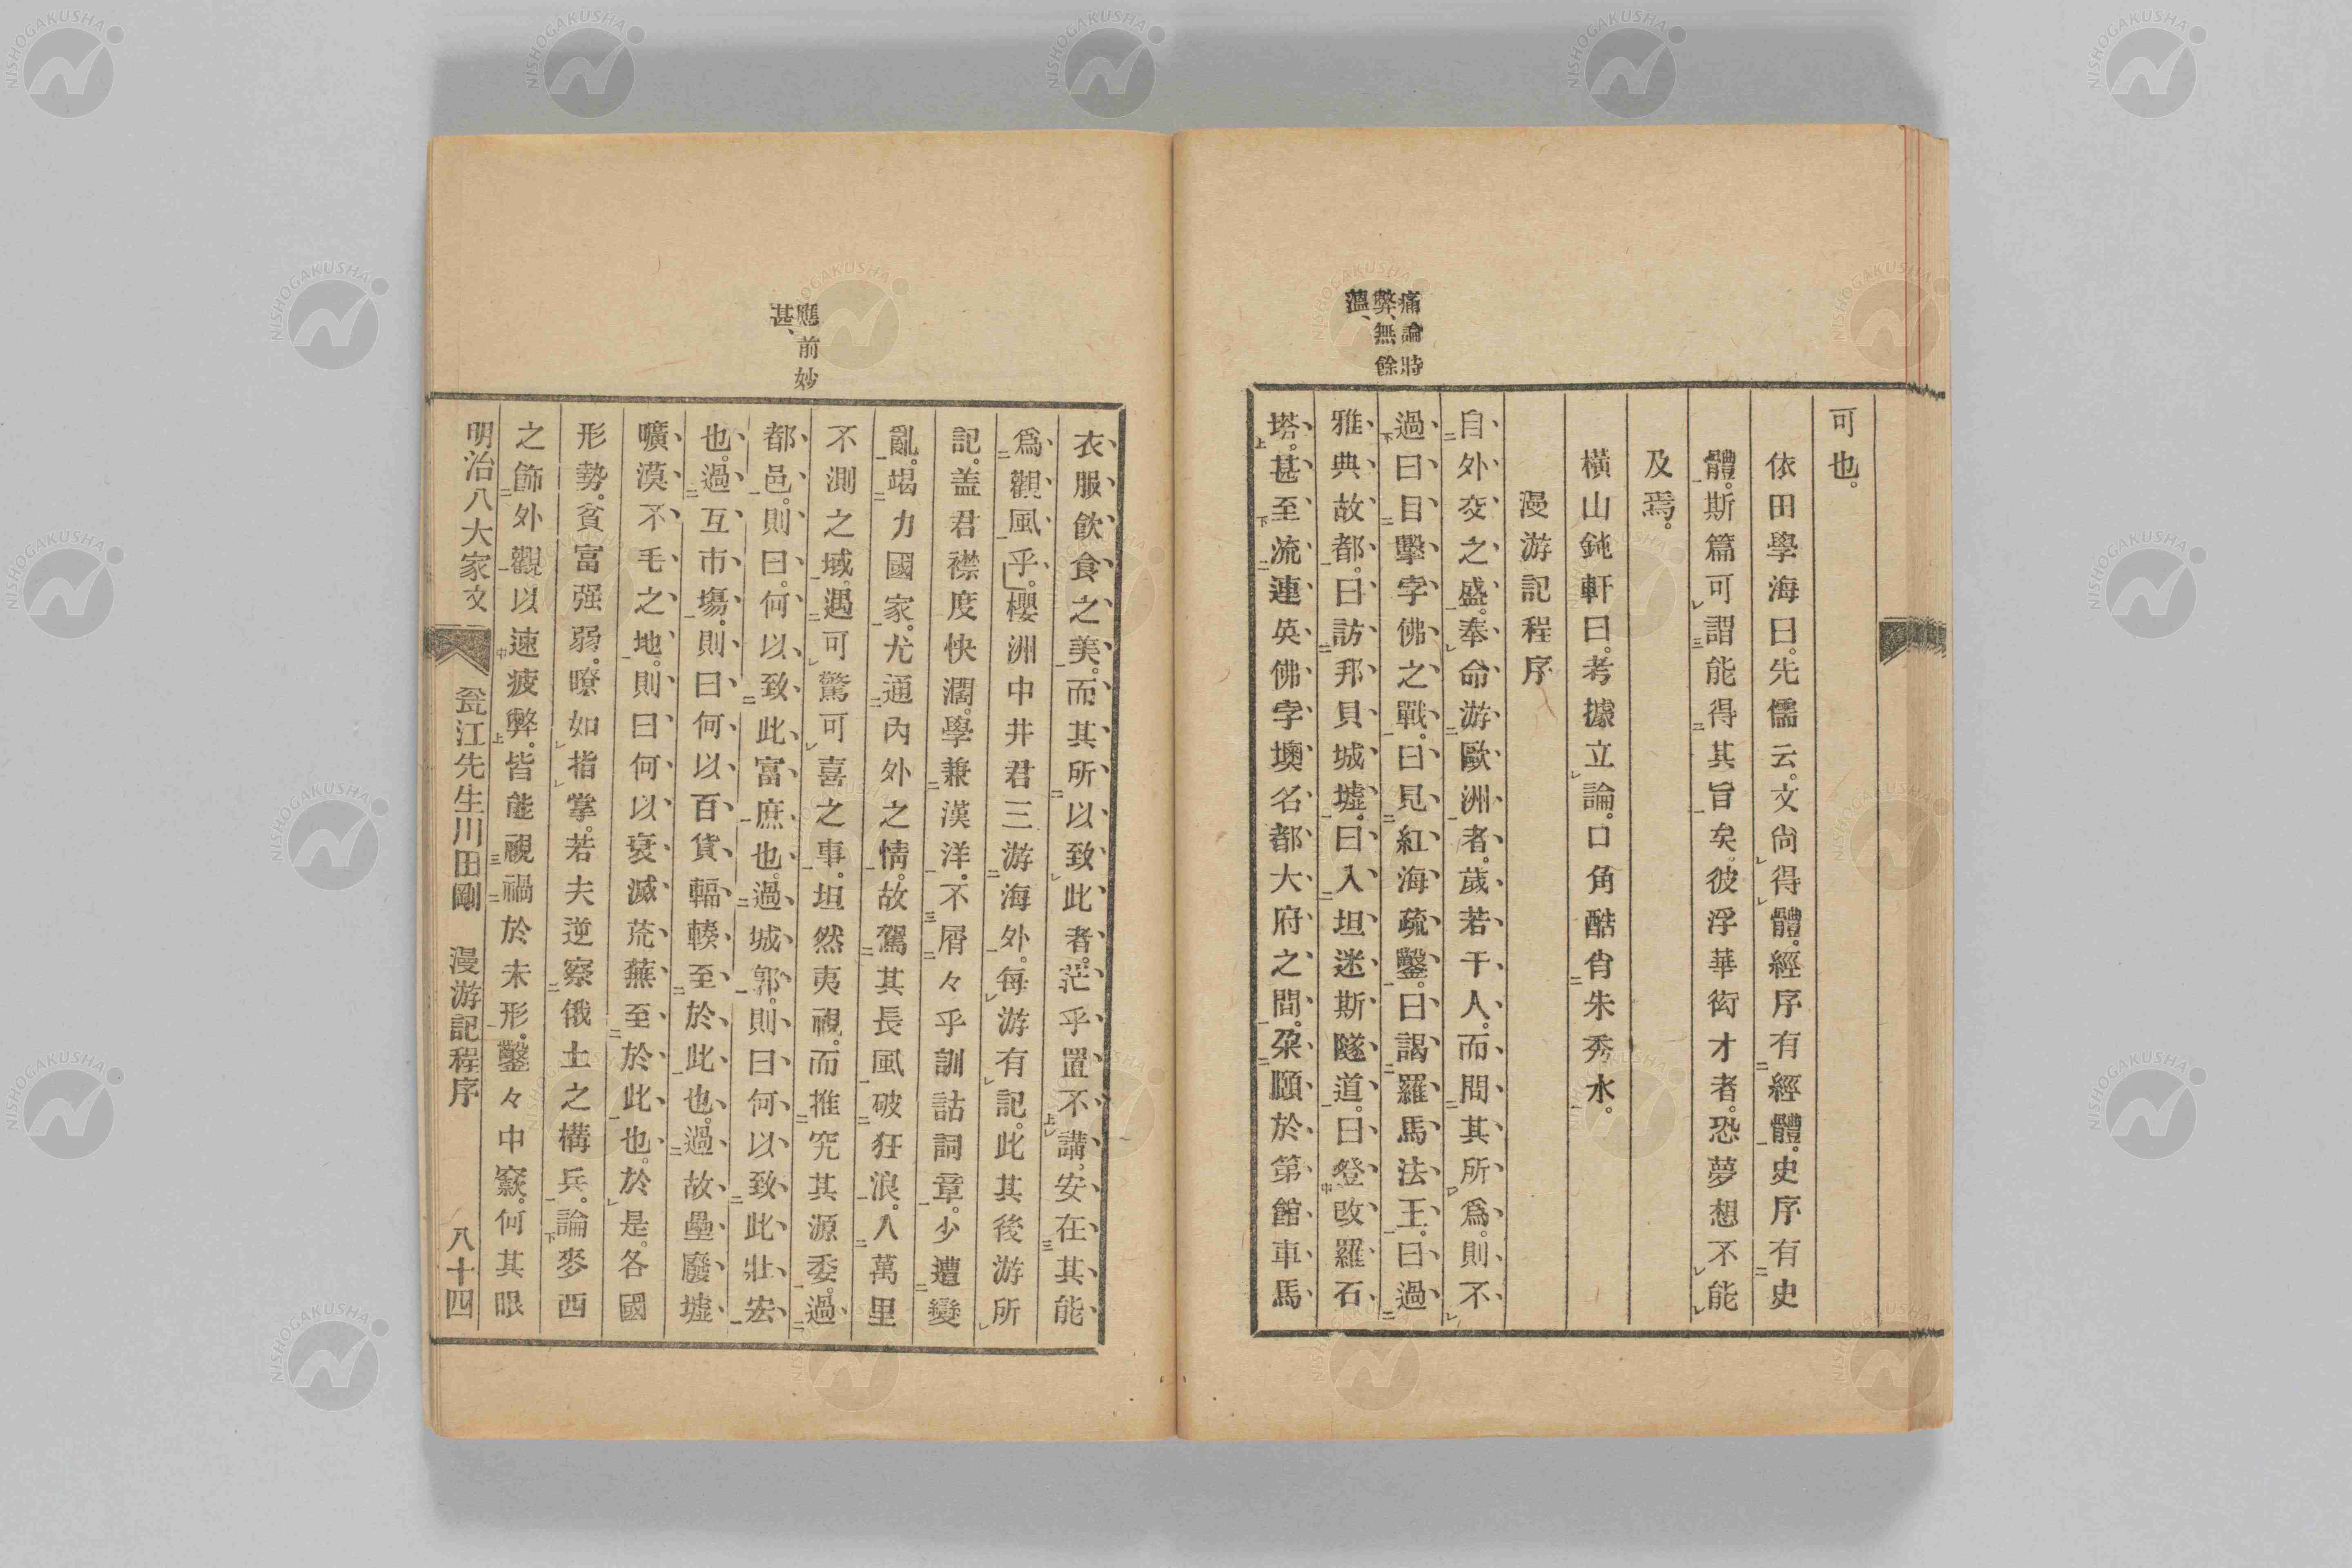 痛論時
弊、無餘
薀、
可也。
依田學海曰。先儒云。文尙得體。經序有經體。史序有史
體。斯篇可謂能得其旨矣。彼浮華衒才者。恐夢想不能
及焉。
橫山鈍軒曰。考據立論。口角酷肖朱秀水。
漫游記程序
自外交之盛。奉命游歐洲者。歲若干人。而問其所爲。則不
過曰目擊孛佛之戰。曰見紅海疏鑿。曰謁羅馬法王。曰過
雅典故都。曰訪邦貝城墟。曰入坦迷斯隧道。曰登攺羅石
塔。甚至流連英佛孛墺名都大府之間。朶頤於第館車馬
應前妙
甚、
衣服飮食之美。而其所以致此者。茫乎置不講、安在其能
爲觀風乎。櫻洲中井君三游海外。每游有記。此其後游所
記。盖君襟度快濶。學兼漢洋。不屑々乎訓詁詞章。少遭變
亂。竭力國家。尤通內外之情。故駕其長風破狂浪。入萬里
不測之域。遇可驚可喜之事。坦然夷視。而推究其源委。過
都邑。則曰。何以致此富庶也。過城郭。則曰何以致此壯宏
也。過互市塲。則曰何以百貨輻輳至於此也。過故壘廢墟
曠漠不毛之地。則曰何以衰滅荒蕪至於此也。於是。各國
形勢。貧富强弱。瞭如指掌。若夫逆察俄土之構兵。論麥西
之飾外觀以速疲弊。皆能視禍於未形。鑿々中窽。何其眼
明治八大家文
瓮江先生川田剛
漫游記程序
八十四
NISHOGAKUSHA